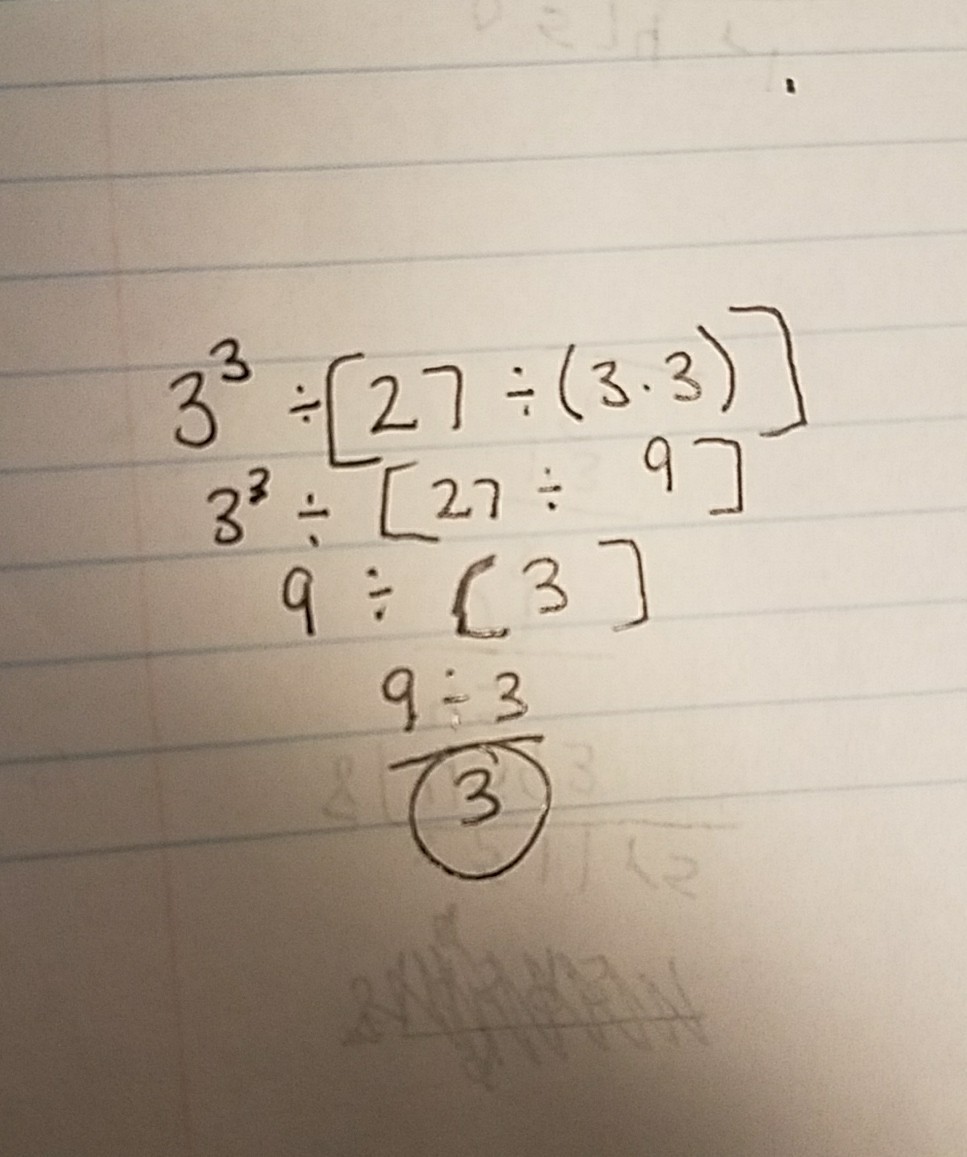 3³ ÷ [27 ÷ (3·3)]
3³ ÷ [27 ÷ 9]
9 ÷ [3]
9 ÷ 3
3